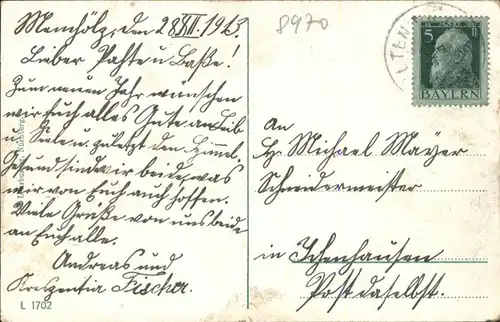 Memhölz, den 28 XII. 1913.
Lieber Pahte u Baße!
Zum neuen Jahr wünschen
wir Euch alles Gute an Leib
u Seele u. zuletzt den Himmel.
Gesund sind wir beide, was
wir von Euch auch hoffen.
Viele Grüße von uns beide
an Euch alle.
Andreas und
Kreszentia Fischer.
L 1702
8970
5
BAYERN
An
H. Michael Mayer
Schneidermeister
in Ichenhausen
Post daselbst.